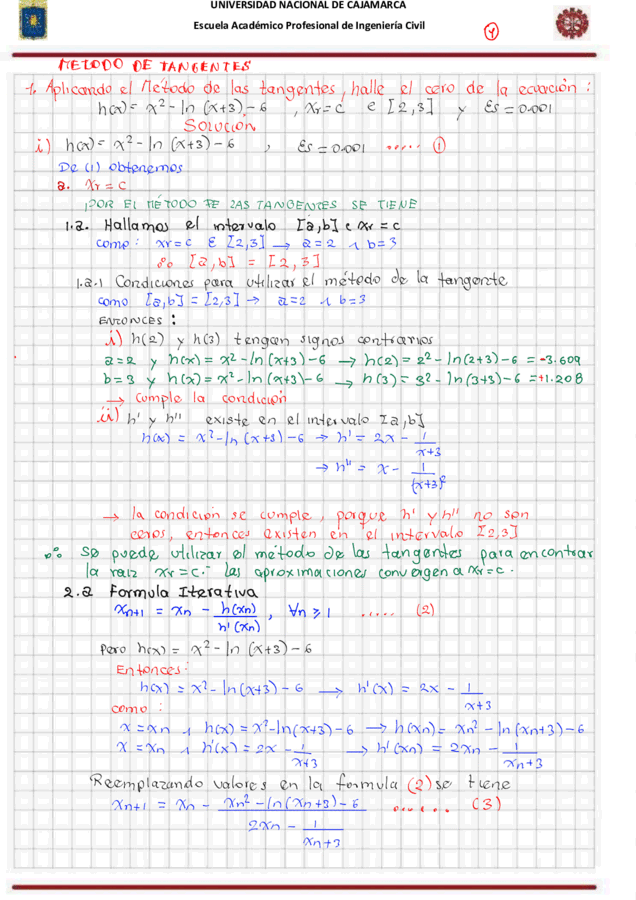 UNIVERSIDAD NACIONAL DE CAJAMARCA
Escuela Académico Profesional de Ingeniería Civil
METODO DE TANGENTES
1. Aplicando el Método de las tangentes, halle el cero de la ecuación:
h(x) = x² - ln (x+3) - 6 , Xr = c ∈ [2,3] y Es = 0.001
SOLUCION
i) h(x) = x² - ln (x+3) - 6 , Es = 0.001 ..... ①
De (1) obtenemos
a. Xr = c
POR EL METODO DE LAS TANGENTES SE TIENE
1.a. Hallamos el intervalo [a,b] ∈ xr = c
como: xr = c ∈ [2,3] → a=2 ∧ b=3
∴ [a,b] = [2,3]
1.a.1 Condiciones para utilizar el método de la tangente
como [a,b] = [2,3] → a=2 ∧ b=3
ENTONCES:
i) h(2) y h(3) tengan signos contrarios
a=2 y h(x) = x² - ln(x+3) - 6 → h(2) = 2² - ln(2+3) - 6 = -3.609
b=3 y h(x) = x² - ln(x+3) - 6 → h(3) = 3² - ln(3+3) - 6 = +1.208
→ cumple la condición
ii) h' y h'' existe en el intervalo [a,b]
h(x) = x² - ln(x+3) - 6 → h' = 2x - 1/(x+3)
→ h'' = x - 1/(x+3)²
→ la condición se cumple, porque h' y h'' no son
ceros, entonces existen en el intervalo [2,3]
∴ se puede utilizar el método de las tangentes para encontrar
la raiz xr = c. Las aproximaciones convergen a xr = c.
2.a Formula Iterativa
xn+1 = xn - h(xn)/h'(xn) , ∀n ≥ 1 ..... (2)
Pero h(x) = x² - ln(x+3) - 6
Entonces:
h(x) = x² - ln(x+3) - 6 → h'(x) = 2x - 1/(x+3)
como:
x = xn ∧ h(x) = x² - ln(x+3) - 6 → h(xn) = xn² - ln(xn+3) - 6
x = xn ∧ h'(x) = 2x - 1/(x+3) → h'(xn) = 2xn - 1/(xn+3)
Reemplazando valores en la formula (2) se tiene
xn+1 = xn - (xn² - ln(xn+3) - 6)/(2xn - 1/(xn+3)) ....... (3)